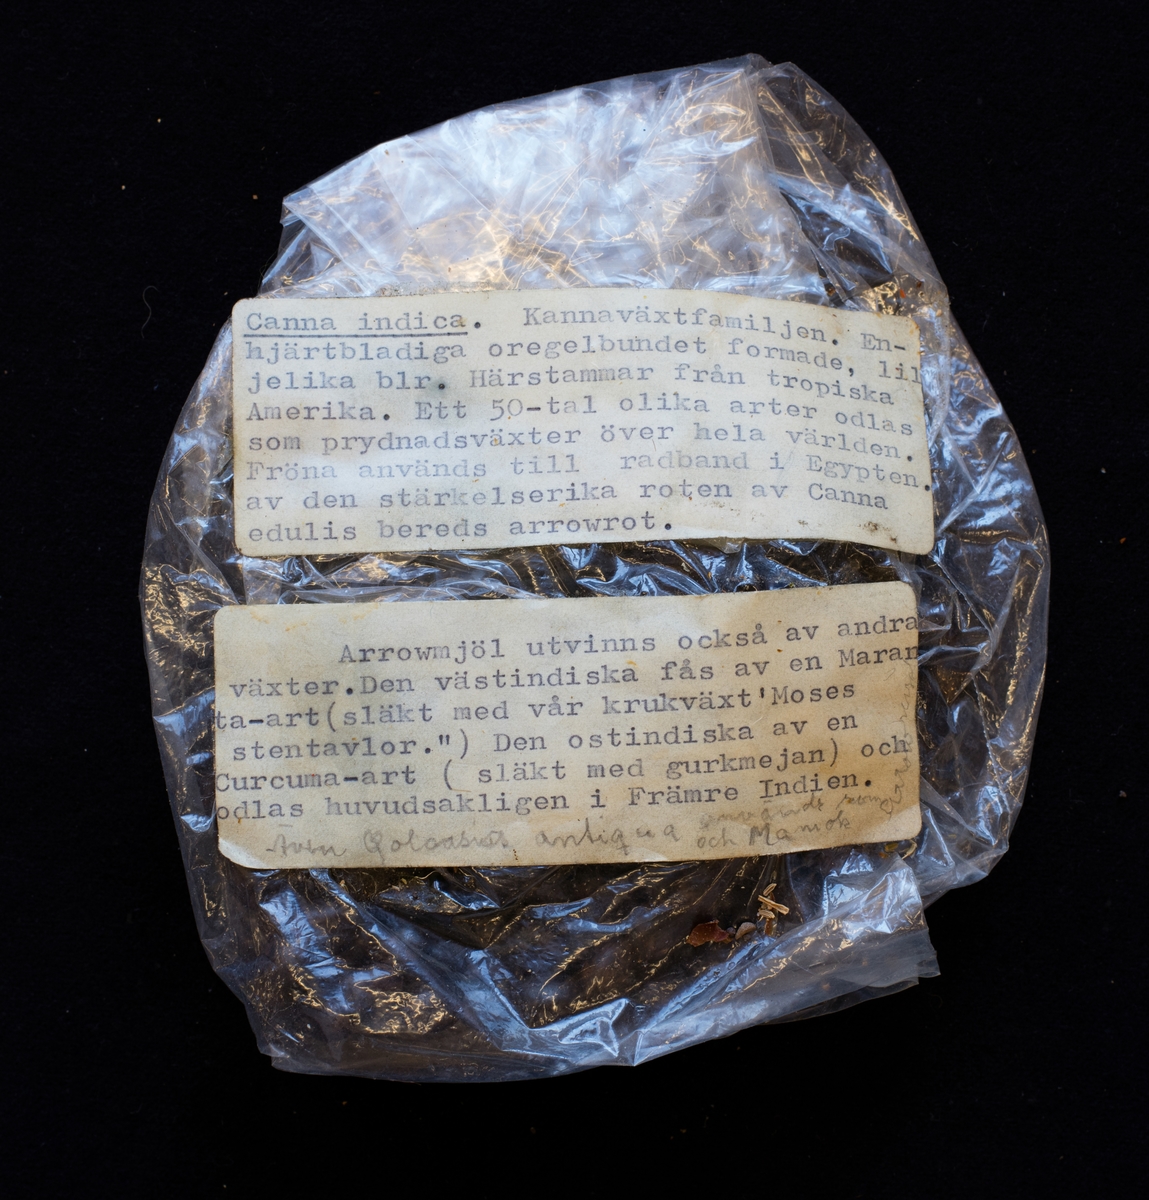 Canna indica. Kannaväxtfamiljen. En-
hjärtbladiga oregelbundet formade, lil
jelika blr. Härstammar från tropiska
Amerika. Ett 50-tal olika arter odlas
som prydnadsväxter över hela världen.
Fröna används till radband i Egypten.
av den stärkelserika roten av Canna
edulis bereds arrowrot.
Arrowmjöl utvinns också av andra
växter.Den västindiska fås av en Maran
ta-art(släkt med vår krukväxt'Moses
stentavlor.") Den ostindiska av en
Curcuma-art ( släkt med gurkmejan) och
odlas huvudsakligen i Främre Indien.
Även antiqua används som
och Maniok